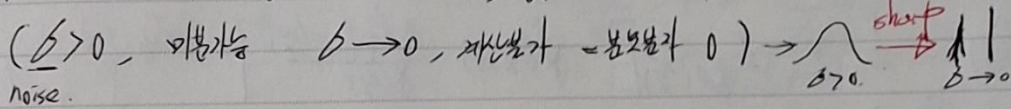 (σ>0, 미분가능 σ→0, 계산불가 = 분모불가 0) → σ>0 sharp → σ→0
noise.